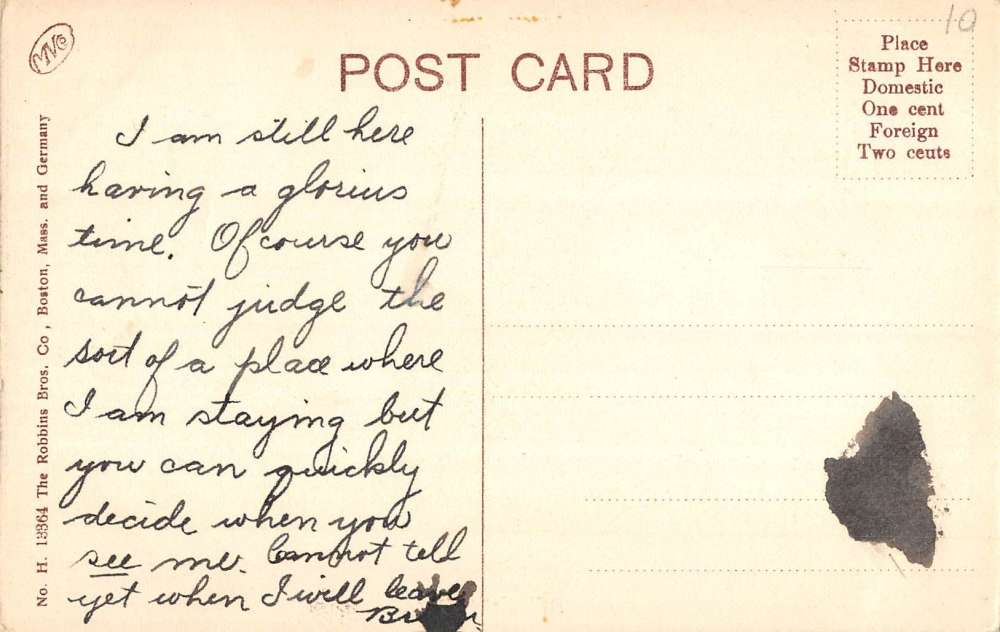 MVCo
POST CARD
10
Place
Stamp Here
Domestic
One cent
Foreign
Two cents
No. H. 13364 The Robbins Bros. Co, Boston, Mass. and Germany
I am still here
having a glorius
time. Of course you
cannot judge the
sort of a place where
I am staying but
you can quickly
decide when you
see me. Cannot tell
yet when I will leave